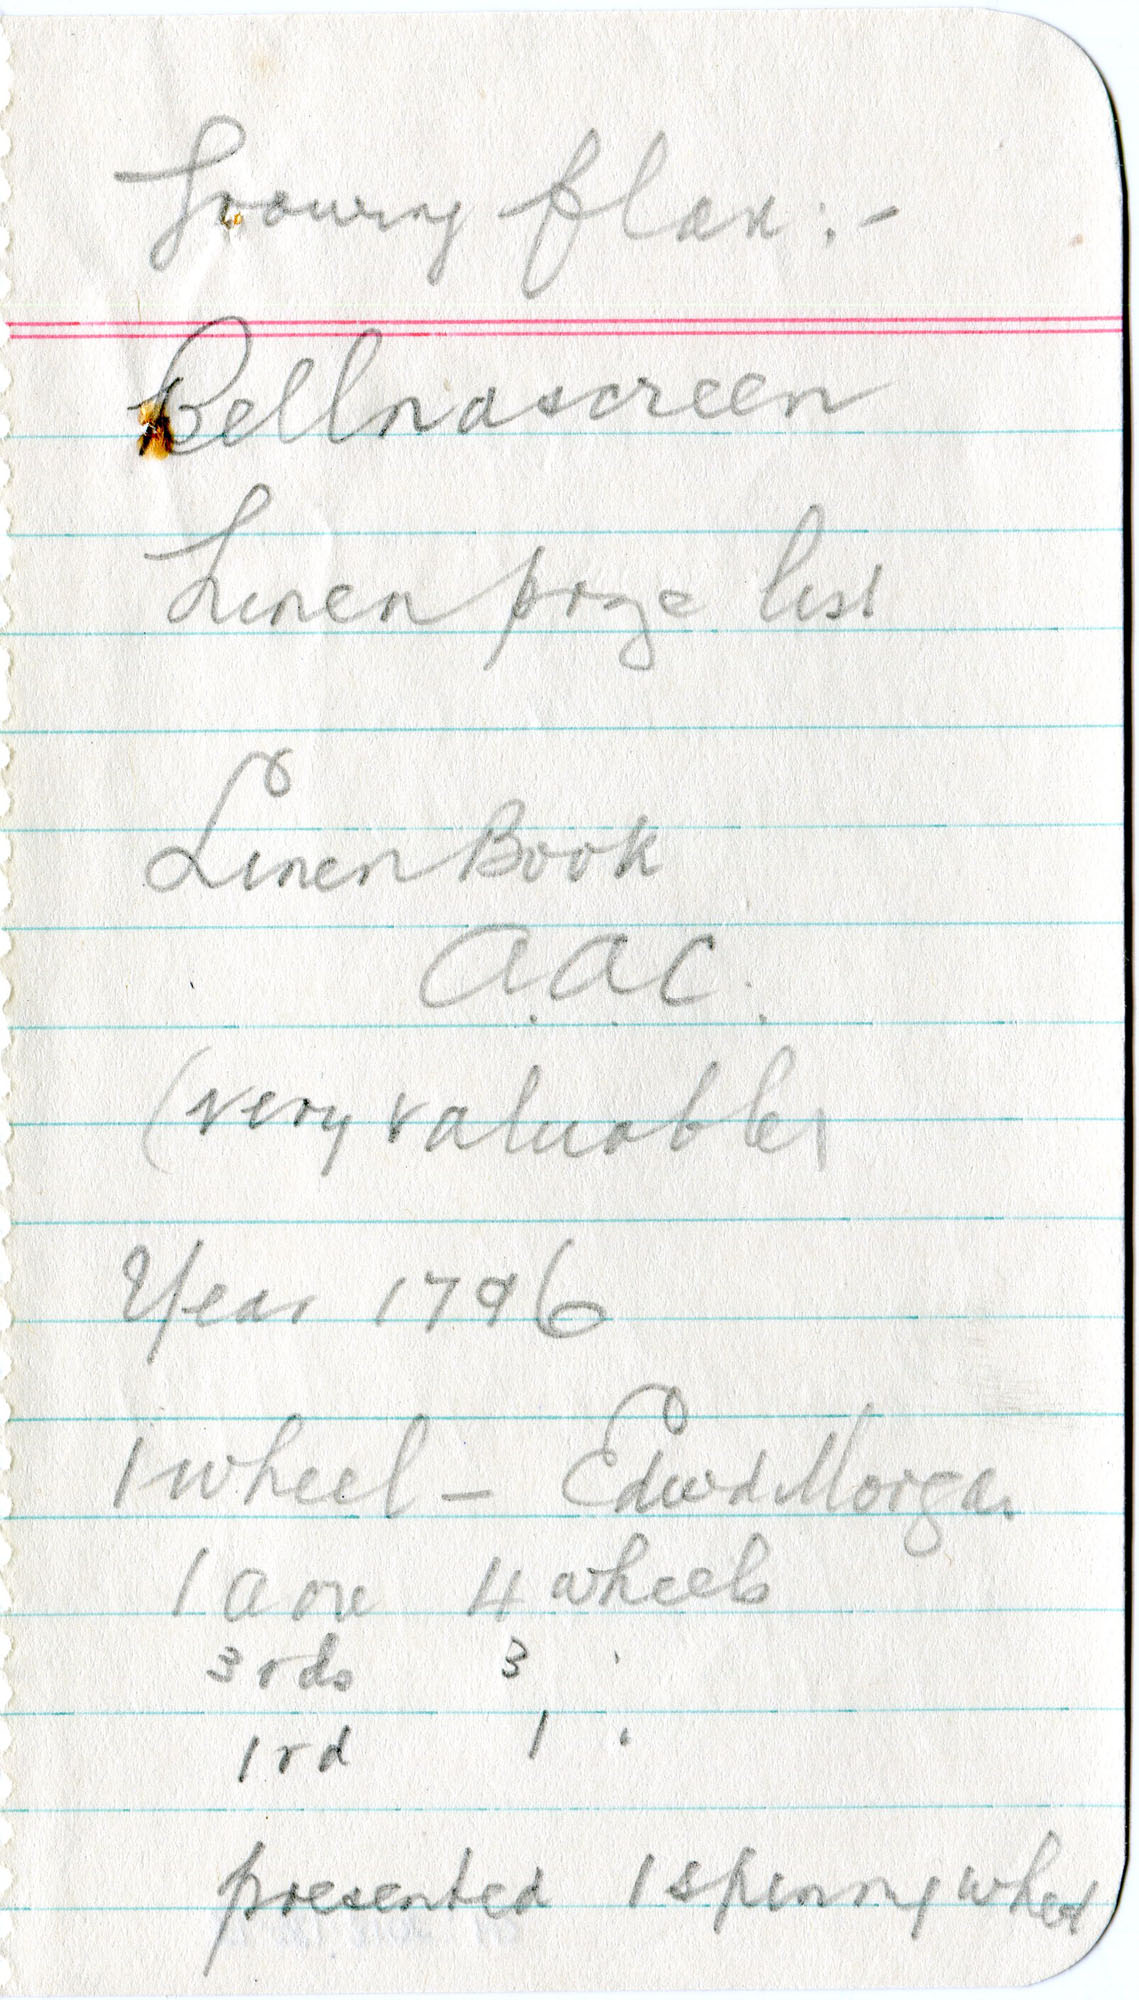 Growing flax :-
Bellnascreen
Linen prize list
Linen Book
A.A.C.
(very valuable)
Year 1796
1 wheel – Edwd Morgan
1 acre 4 wheels
3 rds 3 "
1 rd 1 "
presented 1 spinning wheel